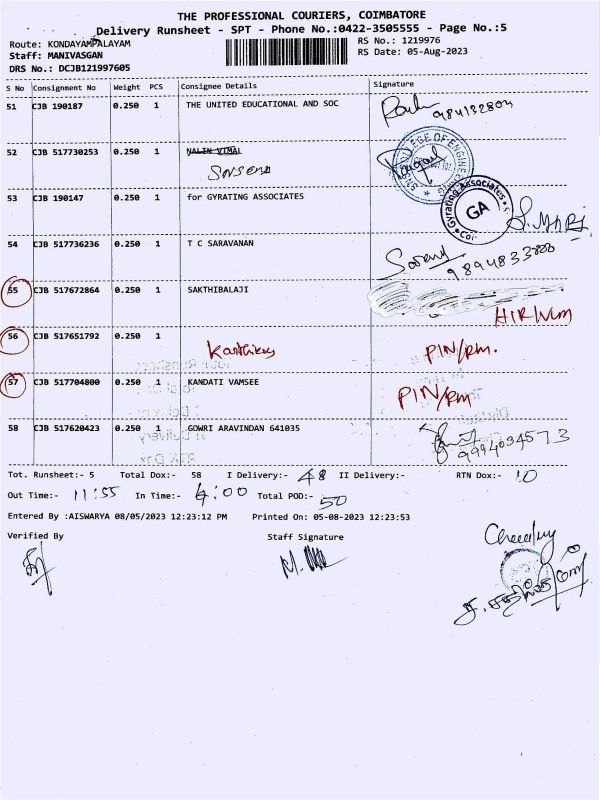 THE PROFESSIONAL COURIERS, COIMBATORE
Delivery Runsheet - SPT - Phone No.:0422-3505555 - Page No.:5
Route: KONDAYAMPALAYAM RS No.: 1219976
Staff: MANIVASGAN RS Date: 05-Aug-2023
DRS No.: DCJB121997605
S No Consignment No Weight PCS Consignee Details Signature
51 CJB 190187 0.250 1 THE UNITED EDUCATIONAL AND SOC
52 CJB 517730253 0.250 1 NALIN VIMAL
COLLEGE OF ENGINEERING
53 CJB 190147 0.250 1 for GYRATING ASSOCIATES
Gyrating Associates
GA
54 CJB 517736236 0.250 1 T C SARAVANAN
55 CJB 517672864 0.250 1 SAKTHIBALAJI
56 CJB 517651792 0.250 1
PIN/RM.
57 CJB 517704800 0.250 1 KANDATI VAMSEE
PIN/RM
58 CJB 517620423 0.250 1 GOWRI ARAVINDAN 641035
9994034573
Tot. Runsheet:- 5 Total Dox:- 58 I Delivery:- 48 II Delivery:- RTN Dox:- 10
Out Time:- 11:55 In Time:- 4:00 Total POD:- 50
Entered By :AISWARYA 08/05/2023 12:23:12 PM Printed On: 05-08-2023 12:23:53
Verified By Staff Signature